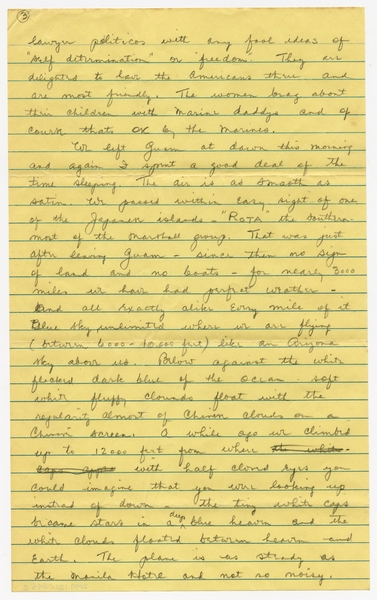 3
lawyer politicos with any fool ideas of
"self determination" or freedom. They are
delighted to have the Americans there and
are most friendly. The women brag about
their children with Marine daddys and of
course thats OK by the Marines.
We left Guam at dawn this morning
and again I spent a good deal of the
time sleeping. The air is as smooth as
satin. We passed within easy sight of one
of the Japanese islands - "ROTA" the southern-
most of the Marshall group. That was just
after leaving Guam - since then no sign
of land and no boats - for nearly 3000
miles we have had perfect weather -
and all exactly alike every mile of it
Blue sky unlimited where we are flying
(between 6000 - 10,000 feet) like an Arizona
sky above us. Below against the white
flecked dark blue of the ocean soft
white fluffy clouds float with the
regularity almost of Chinese clouds on a
Chinese screen. A while ago we climbed
up to 12000 feet from where the white
caps with half closed eyes you
could imagine that you were looking up
instead of down - the tiny white caps
became stars in a deep blue heaven and the
white clouds floated between heaven and
Earth. The plane is as steady as
the Manila Hotel and not so noisy.